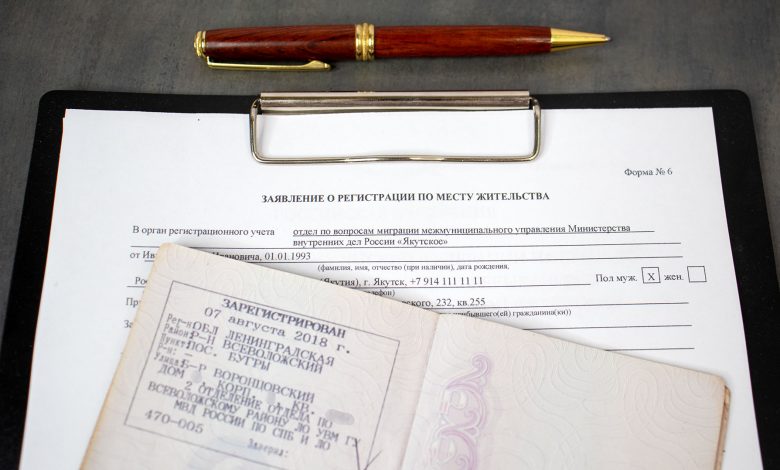 Форма № 6
ЗАЯВЛЕНИЕ О РЕГИСТРАЦИИ ПО МЕСТУ ЖИТЕЛЬСТВА
В орган регистрационного учета отдел по вопросам миграции межмуниципального управления Министерства
внутренних дел России «Якутское»
от Ив Ивановича, 01.01.1993
(фамилия, имя, отчество (при наличии), дата рождения,
Рос (Якутия), г. Якутск, +7 914 111 11 11 Пол муж. X жен.
телефон)
При вского, 232, кв.255
прибывшего(ей) гражданина(ки))
За
ЗАРЕГИСТРИРОВАН
07 августа 2018 г.
Рег-н: ОБЛ ЛЕНИНГРАДСКАЯ
Район: Р-Н ВСЕВОЛОЖСКИЙ
Пункт: ПОС. БУГРЫ
Р-н: –
Улица: Б-Р ВОРОНЦОВСКИЙ
ДОМ КОРП. КВ.
2 ОТДЕЛЕНИЕ ОТДЕЛА ПО
ВСЕВОЛОЖСКОМУ РАЙОНУ ЛО УВМ ГУ
МВД РОССИИ ПО СПБ И ЛО
470-005
Заверил: